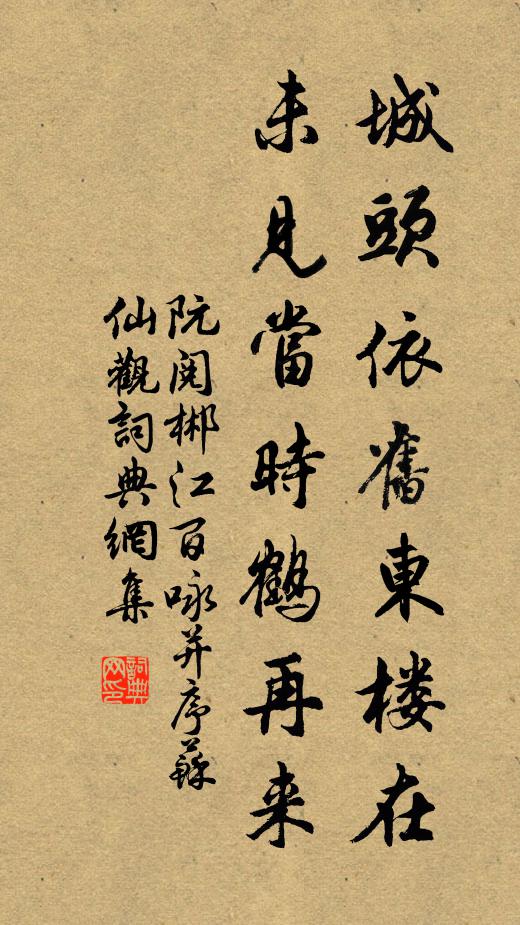 城頭依舊東楼在
未見當時鶴再来
阮閱郴江百咏并序蘇
仙觀詞典網集
詞典
网印